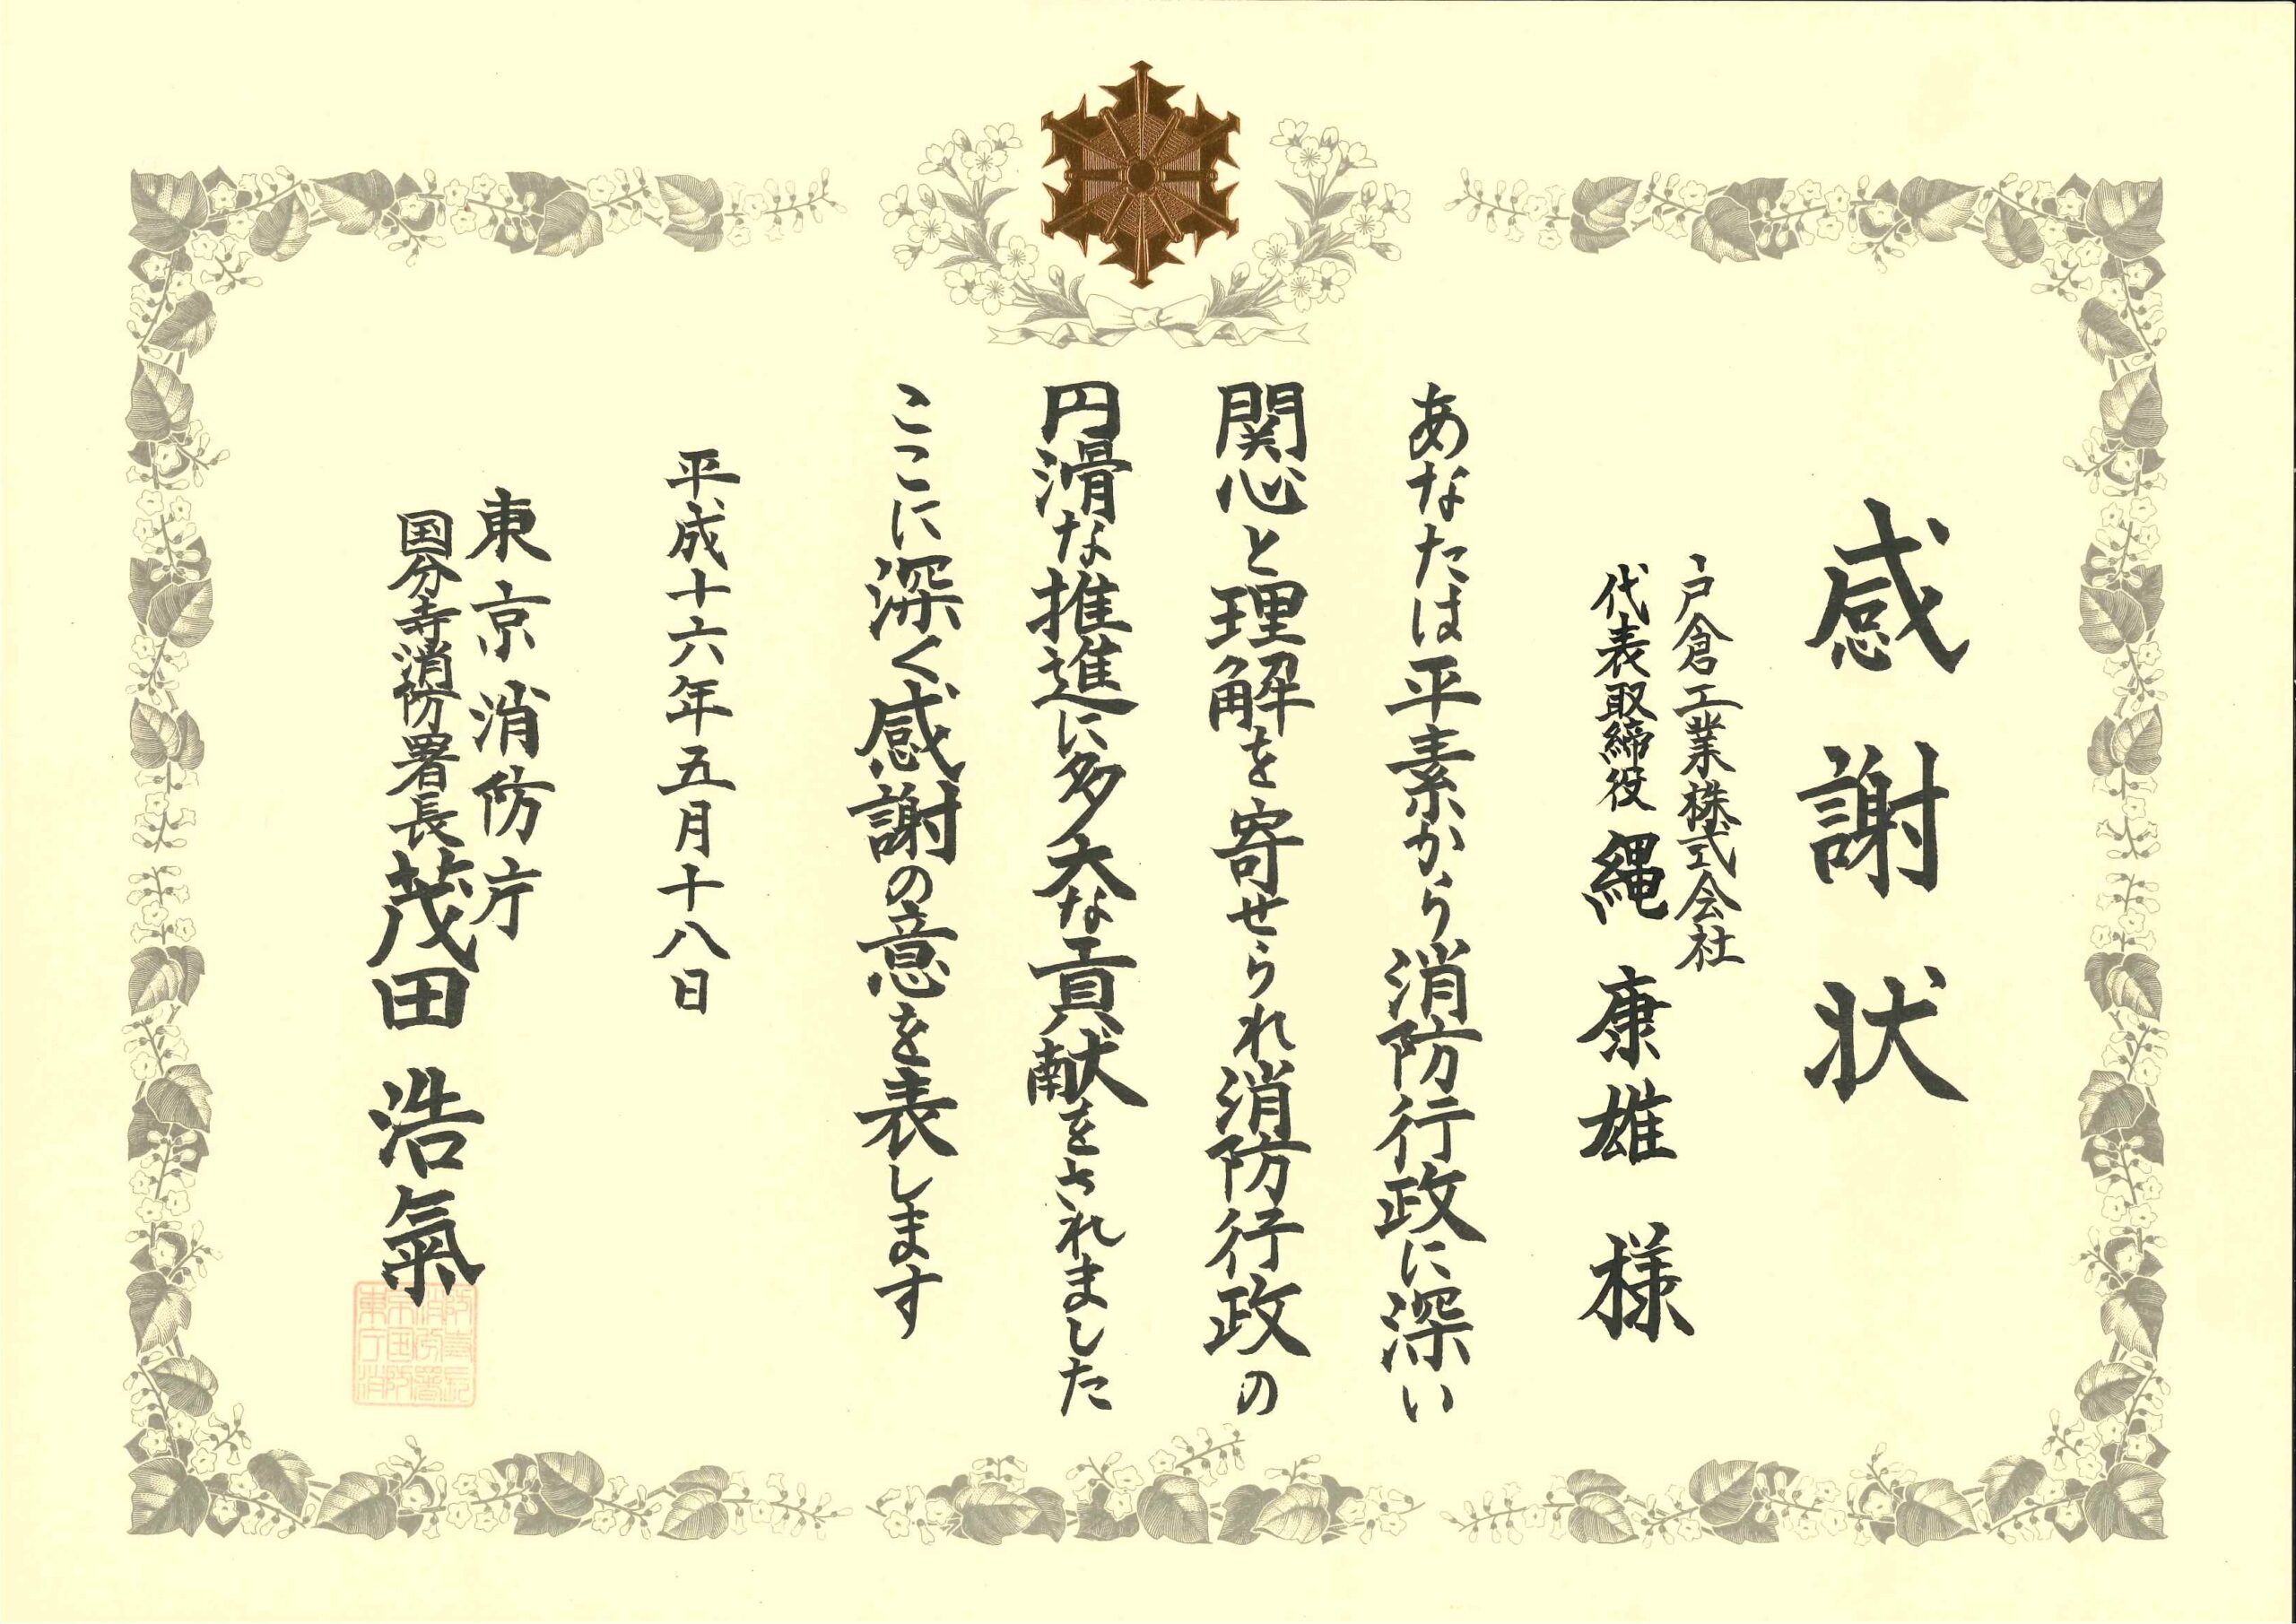 感謝状
戸倉工業株式会社
代表取締役 縄 康雄 様
あなたは平素から消防行政に深い
関心と理解を寄せられ消防行政の
円滑な推進に多大な貢献をされました
ここに深く感謝の意を表します
平成十六年五月十八日
東京消防庁
国分寺消防署長 茂田 浩氣